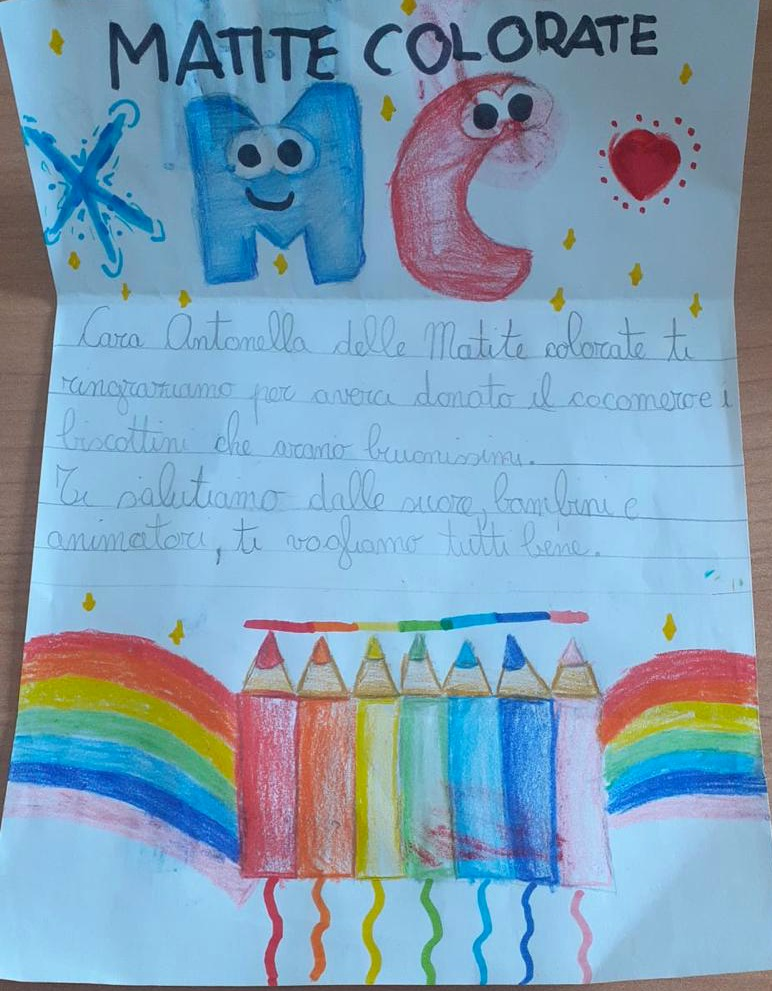 MATITE COLORATE
M C
Cara Antonella delle Matite colorate ti
ringraziamo per averci donato il cocomero e i
biscottini che erano buonissimi.
Ti salutiamo dalle suore, bambini e
animatori, ti vogliamo tutti bene.